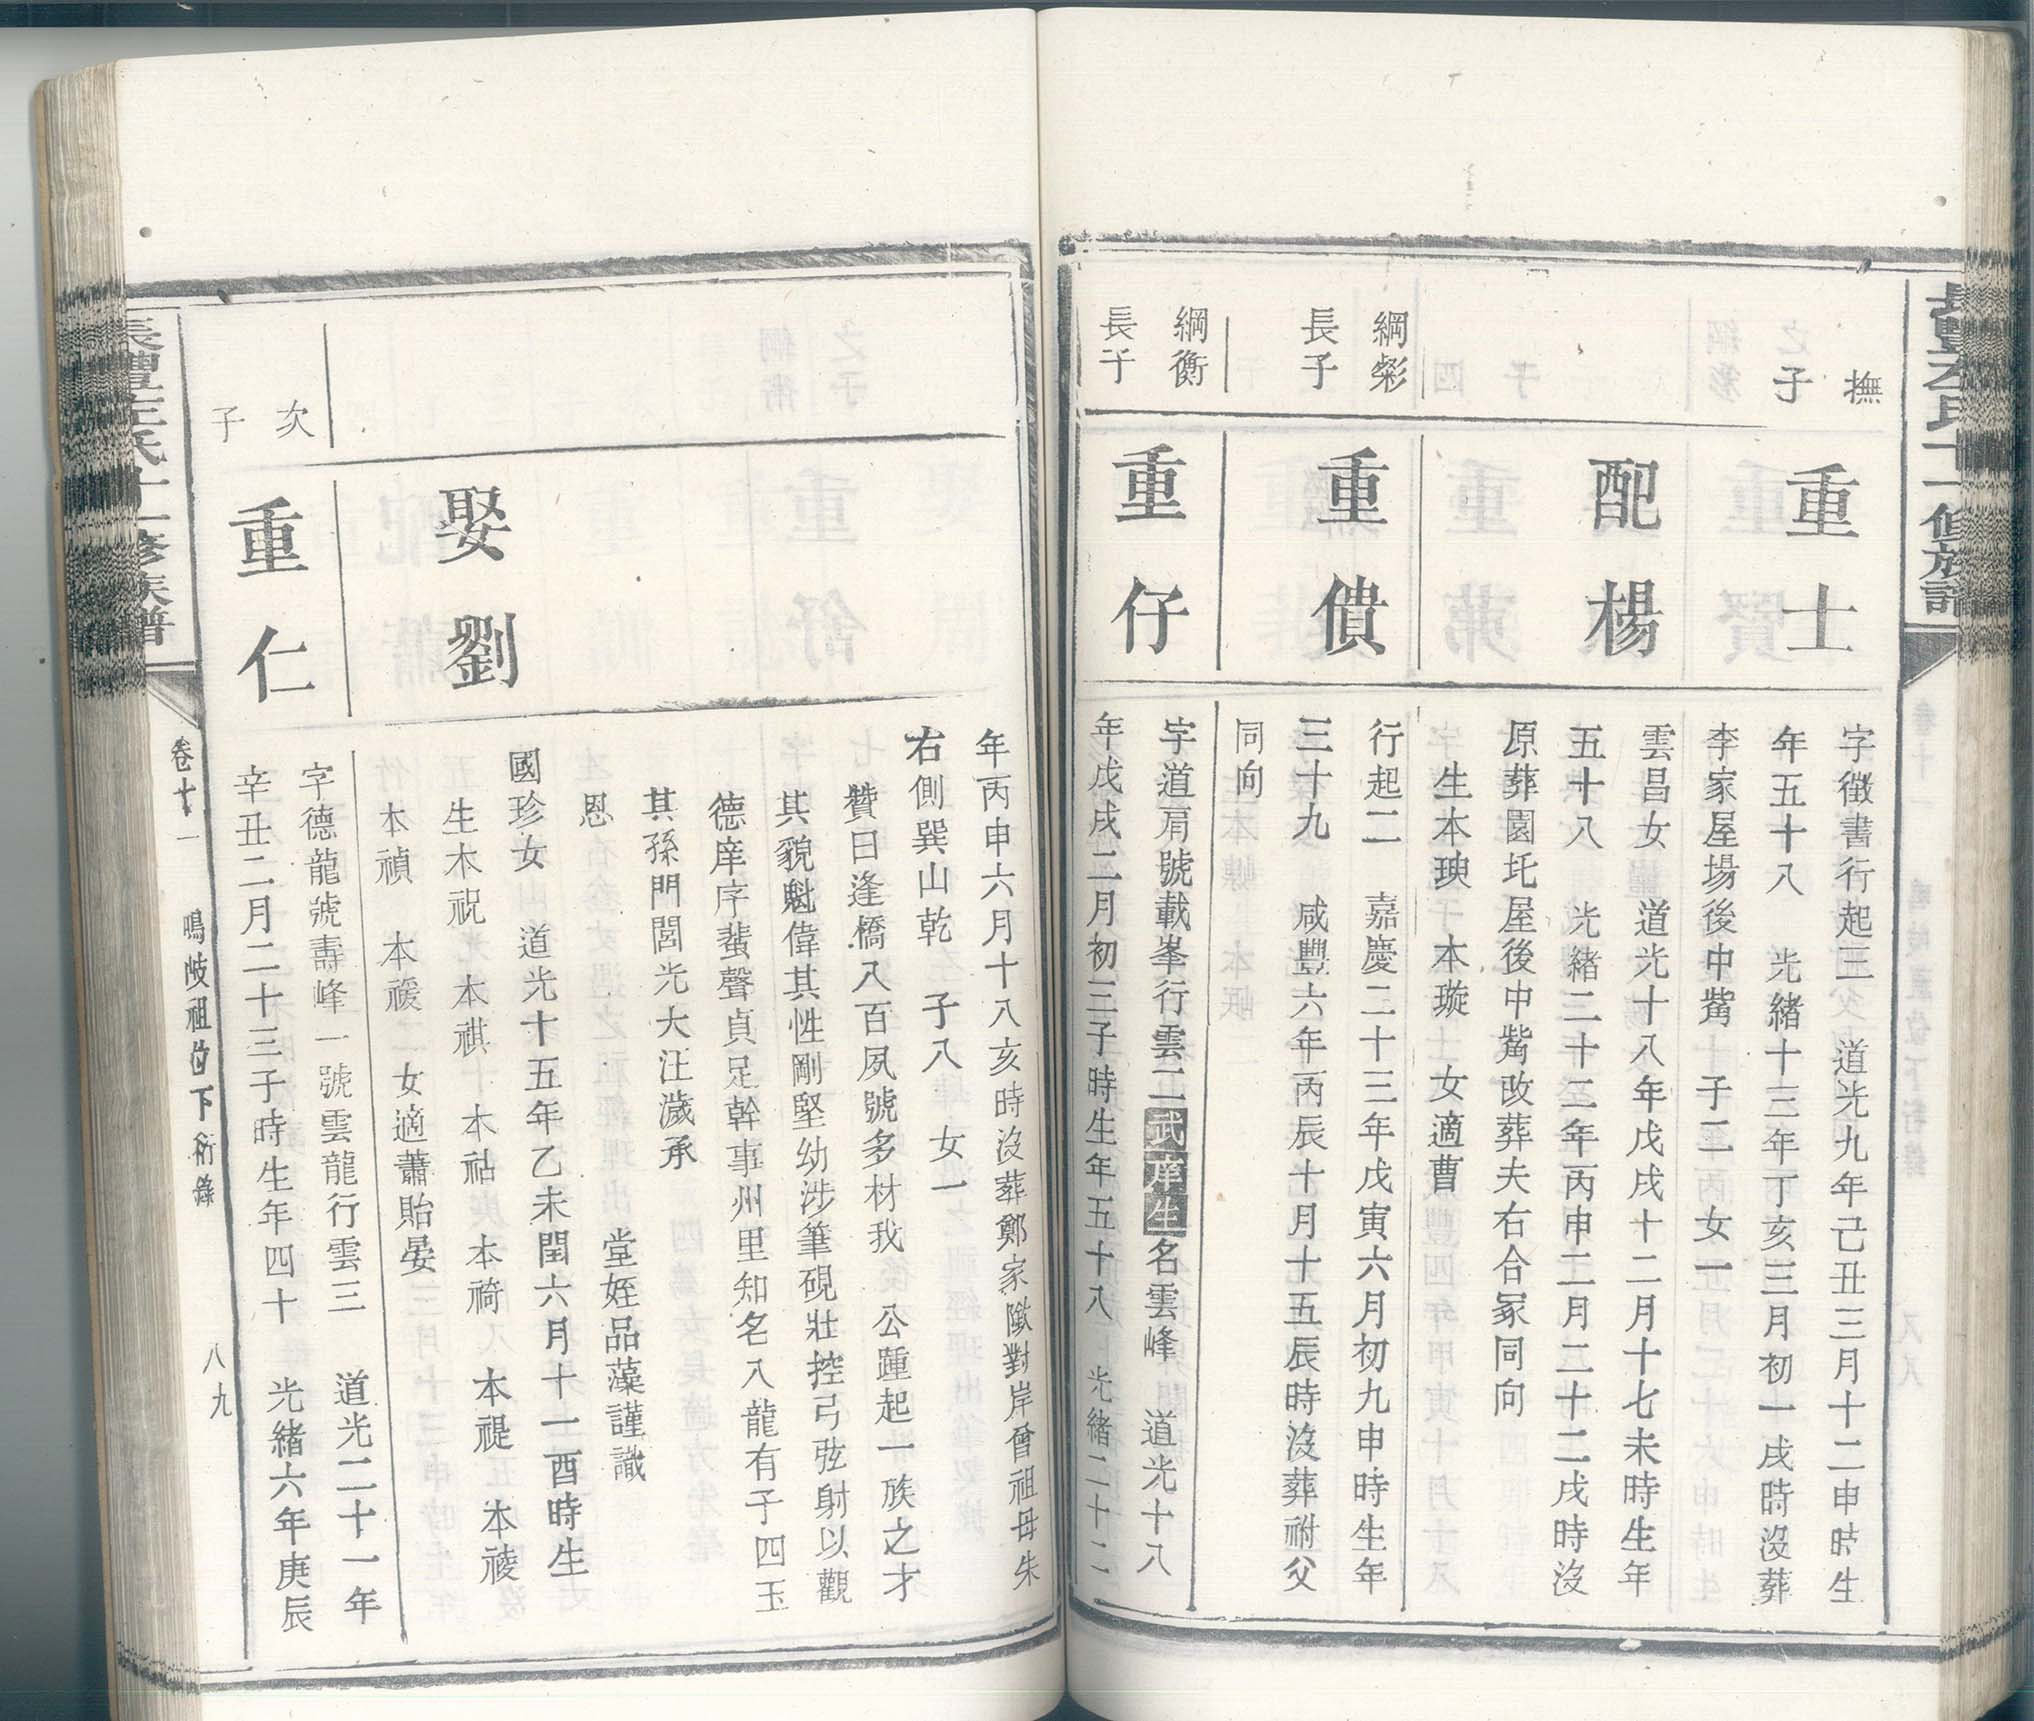 撫
之子
重士
字徵書行起三 道光九年己丑三月十二申時生
年五十八 光緒十三年丁亥三月初一戌時沒葬
李家屋場後中觜 子二 女一
配楊
雲昌女 道光十八年戊戌十二月十七未時生年
五十八 光緒二十二年丙申二月二十二戌時沒
原葬園圫屋後中觜改葬夫右合冢同向
生本琠 本璇 女適曹
綱粲
長子
重僨
行起二 嘉慶二十三年戊寅六月初九申時生年
三十九 咸豐六年丙辰十月十五辰時沒葬祔父
同向
綱衡
長子
重仔
字道肩號載峯行雲二武庠生名雲峰 道光十八
年戊戌二月初三子時生年五十八 光緒二十二
年丙申六月十八亥時沒葬鄭家隵對岸曾祖母朱
右側巽山乾 子八 女一
贊曰逢橋八百夙號多材我 公踵起一族之才
其貌魁偉其性剛堅幼涉筆硯壯控弓弦射以觀
德庠序蜚聲貞足幹事州里知名八龍有子四玉
其孫門閭光大汪濊承
恩 堂姪品藻謹識
娶劉
國珍女 道光十五年乙未閏六月十一酉時生
生本祝 本祺 本祜 本禕 本禔 本祾
本禎 本禐 女適蕭貽晏
次
子
重仁
字德龍號壽峰一號雲龍行雲三 道光二十一年
辛丑二月二十三子時生年四十 光緒六年庚辰
卷十一 鳴岐祖位下衍錄 八九